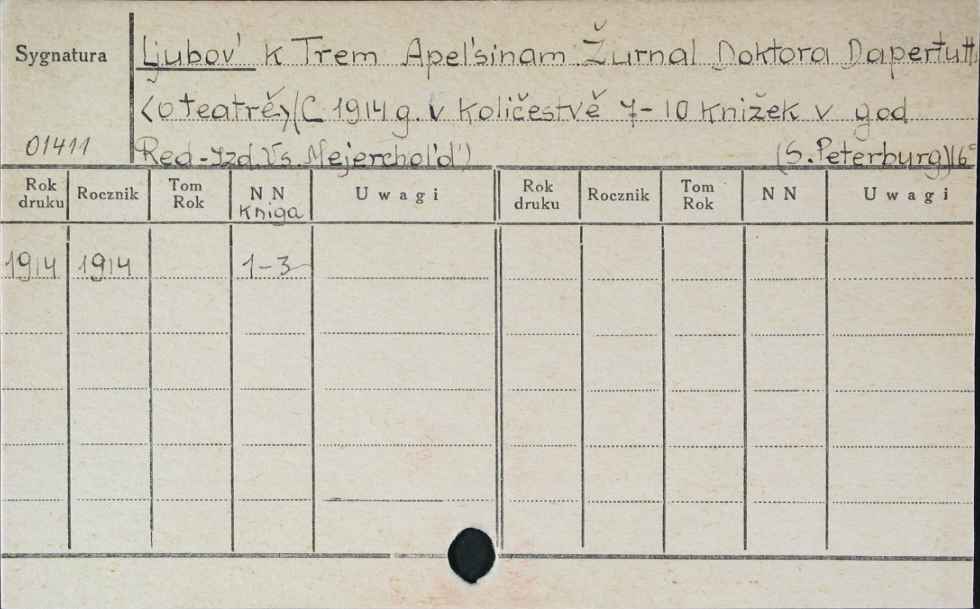 Sygnatura
Ljubov' k Trem Apel'sinam Žurnal Doktora Dapertutt
<o teatrě>(C 1914 g. v Količestvě 7-10 Knižek v god
01411
Red-Izd. Vs. Mejerchol'd') (S. Peterburg)
Rok druku Rocznik Tom Rok N N Kniga Uwagi Rok druku Rocznik Tom Rok N N Uwagi
1914 1914 1-3